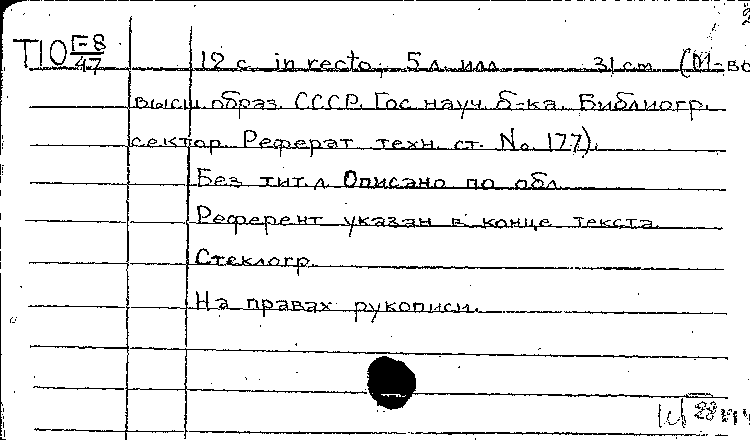 Т10 Г-8/47 12 с. in recto, 5 л. илл. 31 cm (М-во
высш. образ. СССР. Гос. науч. б-ка. Библиогр.
сектор. Реферат техн. ст. No 177).
Без тит. л. Описано по обл.
Референт указан в конце текста.
Стеклогр.
На правах рукописи.